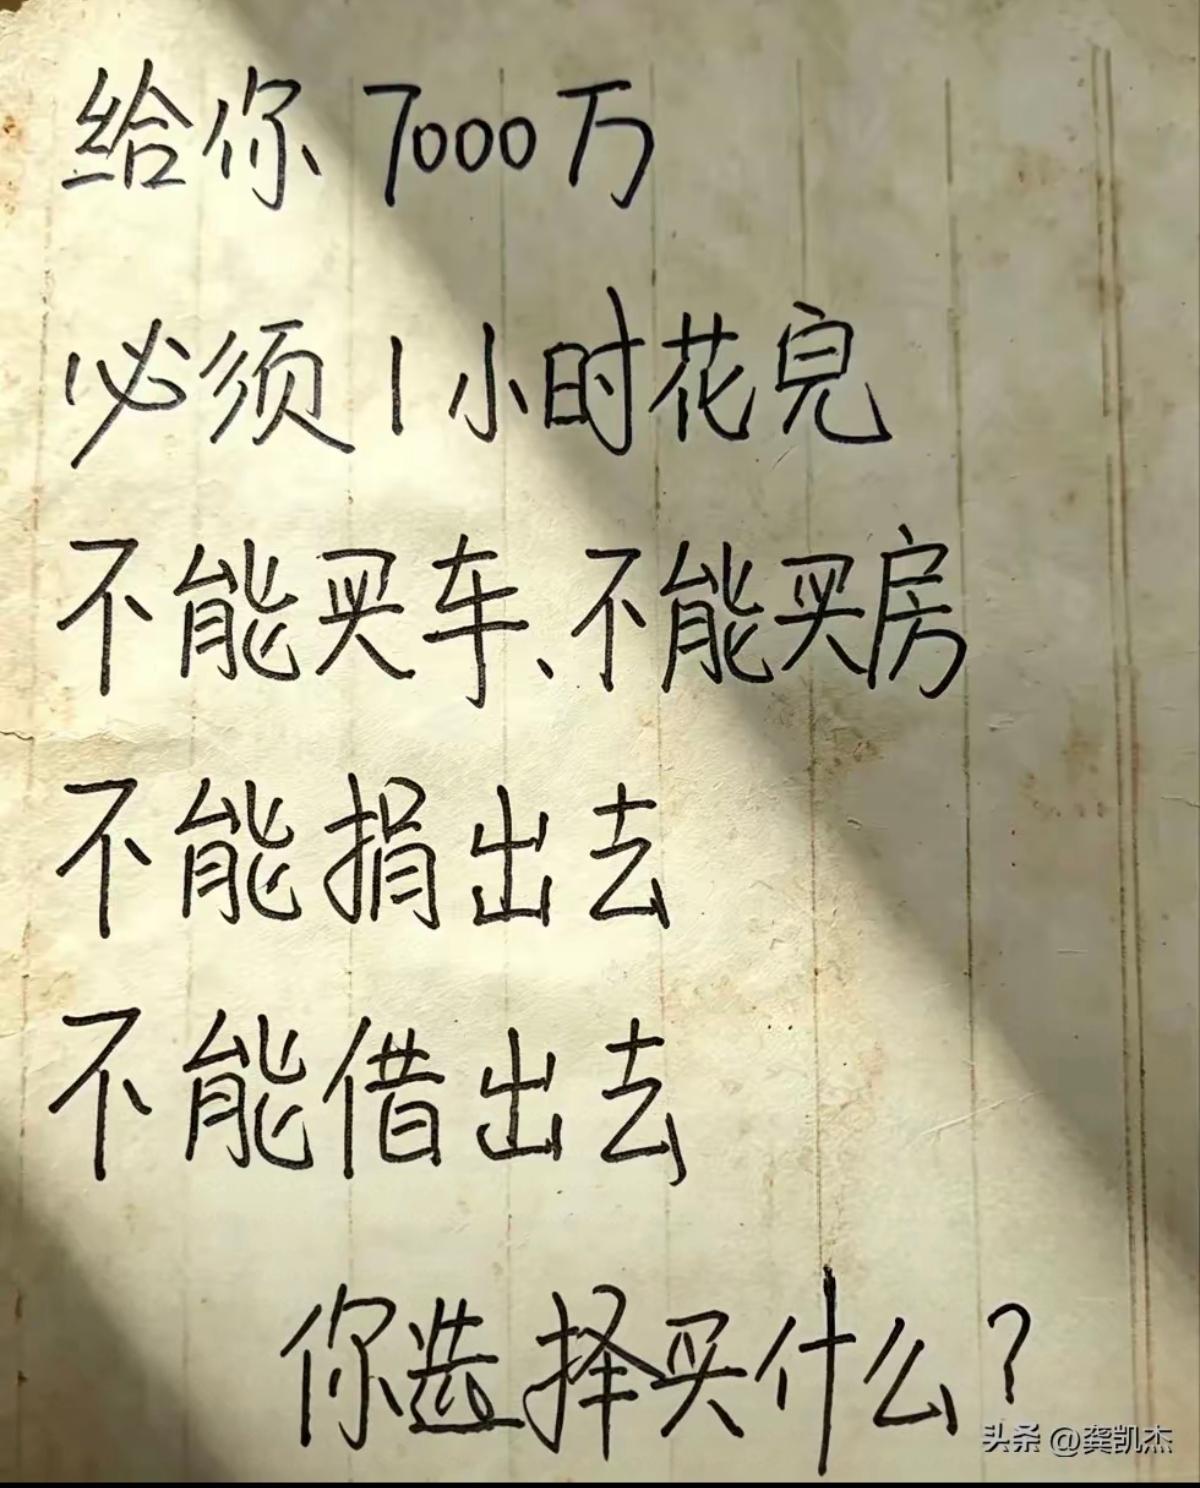 给你7000万
必须1小时花完
不能买车、不能买房
不能捐出去
不能借出去
你选择买什么?
头条 @龚凯杰